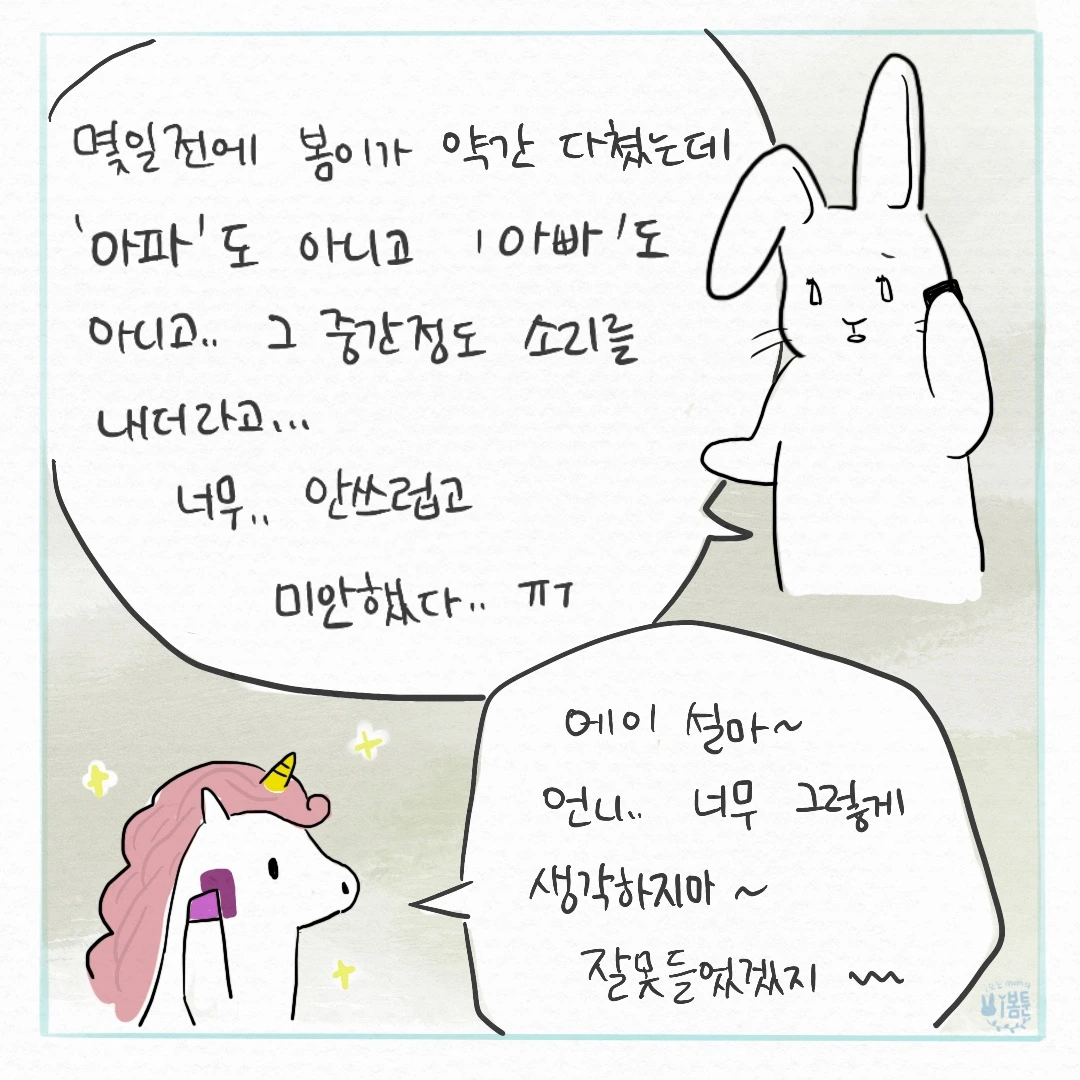 몇일전에 봄이가 약간 다쳤는데
'아파'도 아니고 '아빠'도
아니고.. 그 중간정도 소리를
내더라고...
너무.. 안쓰럽고
미안했다.. ㅠㅜ
에이 설마~
언니.. 너무 그렇게
생각하지마 ~
잘못들었겠지 ~~